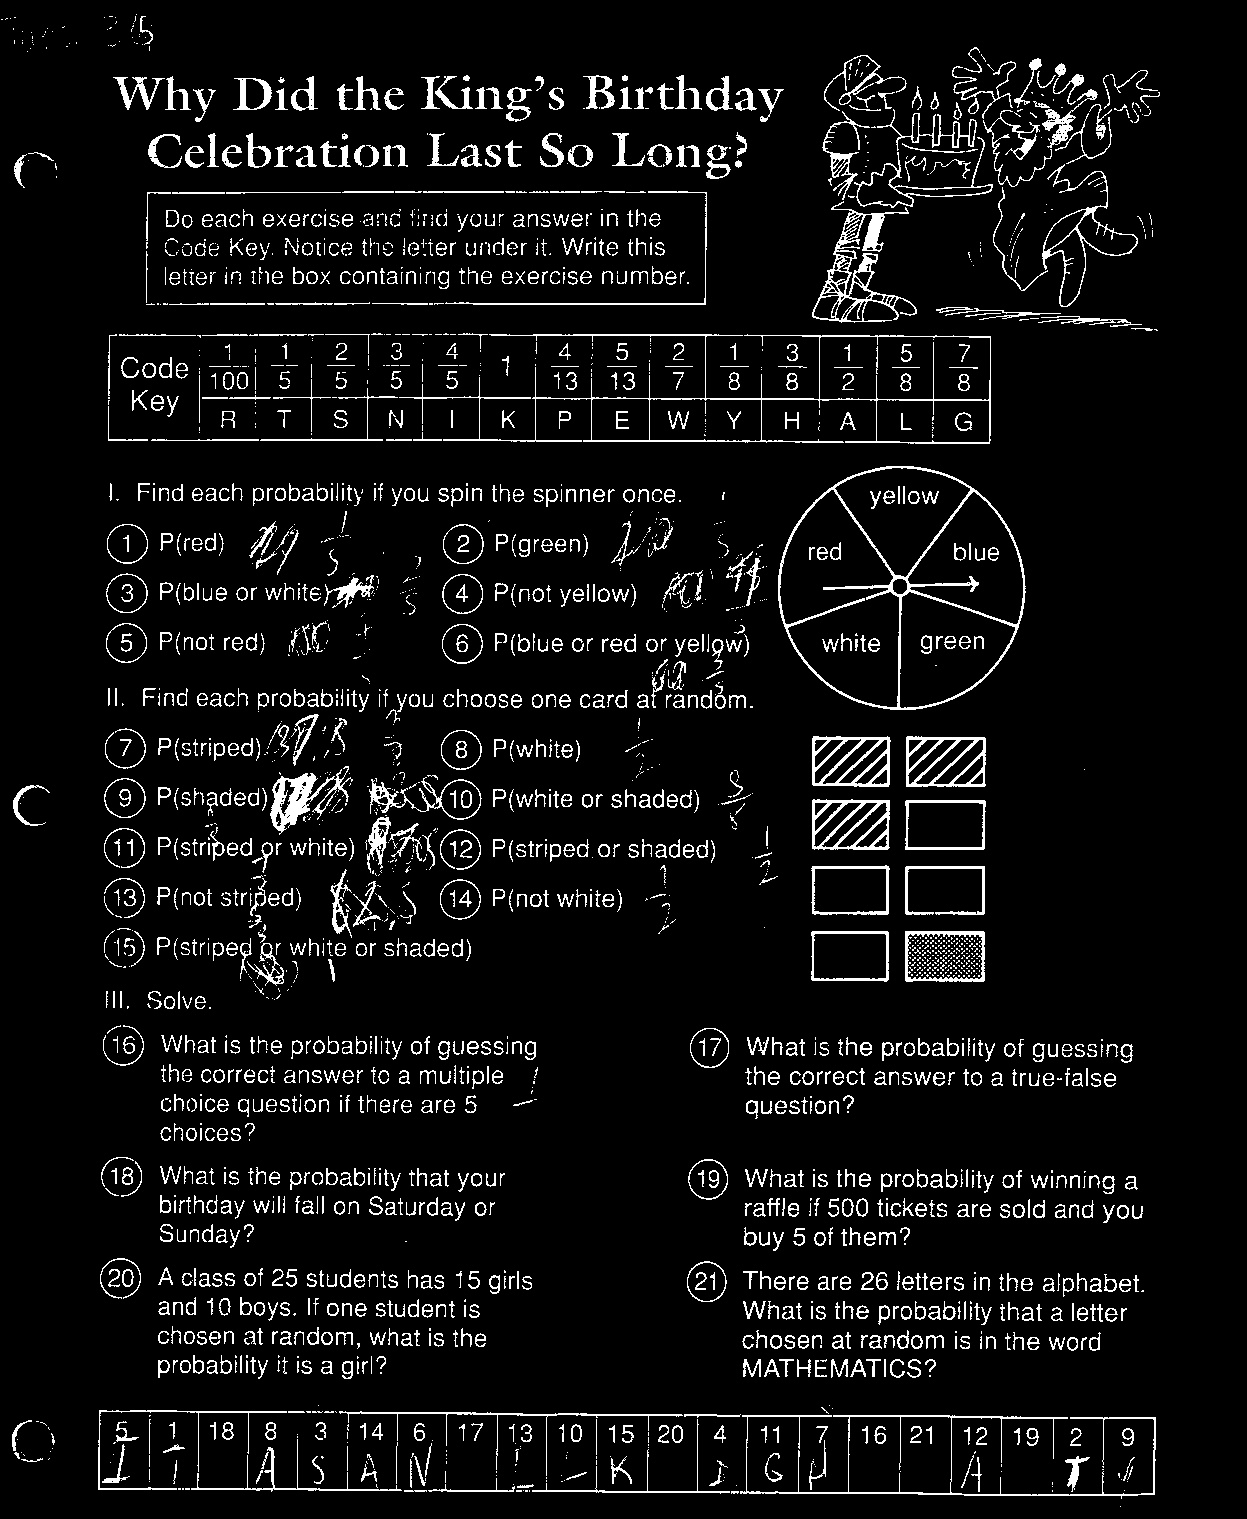 Why Did the King's Birthday
Celebration Last So Long?
Do each exercise and find your answer in the
Code Key. Notice the letter under it. Write this
letter in the box containing the exercise number.
Code Key
1/100 1/5 2/5 3/5 4/5 1 4/13 5/13 2/7 1/8 3/8 1/2 5/8 7/8
R T S N I K P E W Y H A L G
I. Find each probability if you spin the spinner once.
1 P(red) 1/5
2 P(green)
3 P(blue or white)
4 P(not yellow)
5 P(not red)
6 P(blue or red or yellow)
yellow
red
blue
white
green
II. Find each probability if you choose one card at random.
7 P(striped)
8 P(white) 1/2
9 P(shaded)
10 P(white or shaded)
11 P(striped or white)
12 P(striped or shaded) 1/2
13 P(not striped)
14 P(not white) 1/2
15 P(striped or white or shaded)
III. Solve.
16 What is the probability of guessing
the correct answer to a multiple
choice question if there are 5
choices?
17 What is the probability of guessing
the correct answer to a true-false
question?
18 What is the probability that your
birthday will fall on Saturday or
Sunday?
19 What is the probability of winning a
raffle if 500 tickets are sold and you
buy 5 of them?
20 A class of 25 students has 15 girls
and 10 boys. If one student is
chosen at random, what is the
probability it is a girl?
21 There are 26 letters in the alphabet.
What is the probability that a letter
chosen at random is in the word
MATHEMATICS?
5 1 18 8 3 14 6 17 13 10 15 20 4 11 7 16 21 12 19 2 9
I T A S A N L K I G H A T